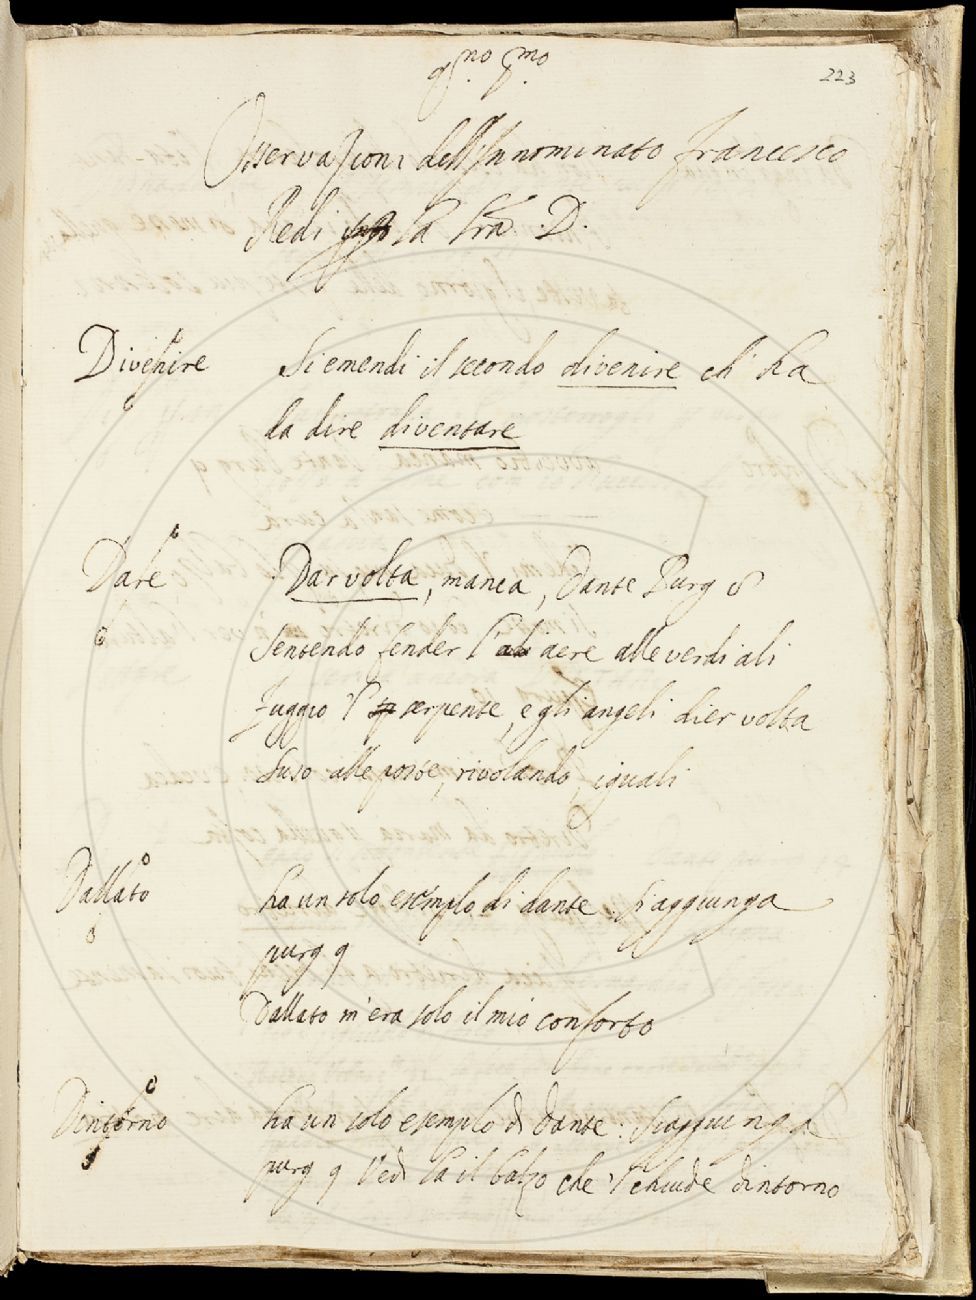 223
Osservazioni dell'Innominato Francesco
Redi la Lra. D.
Divenire Si emendi il secondo divenire ch' ha
da dire diventare
Dare Dar volta, manca, Dante Purg 8
Sentendo fender l' aere alle verdi ali
Fuggio 'l serpente, e gli angeli dier volta
Suso alle poste, rivolando, iguali
Dallato ha un solo esemplo di dante. Si aggiunga
purg 9
Dallato m'era solo il mio conforto
Dintorno ha un solo esemplo di dante. Si aggiunga
purg 9 Vedi la il balzo che 'l chiude dintorno